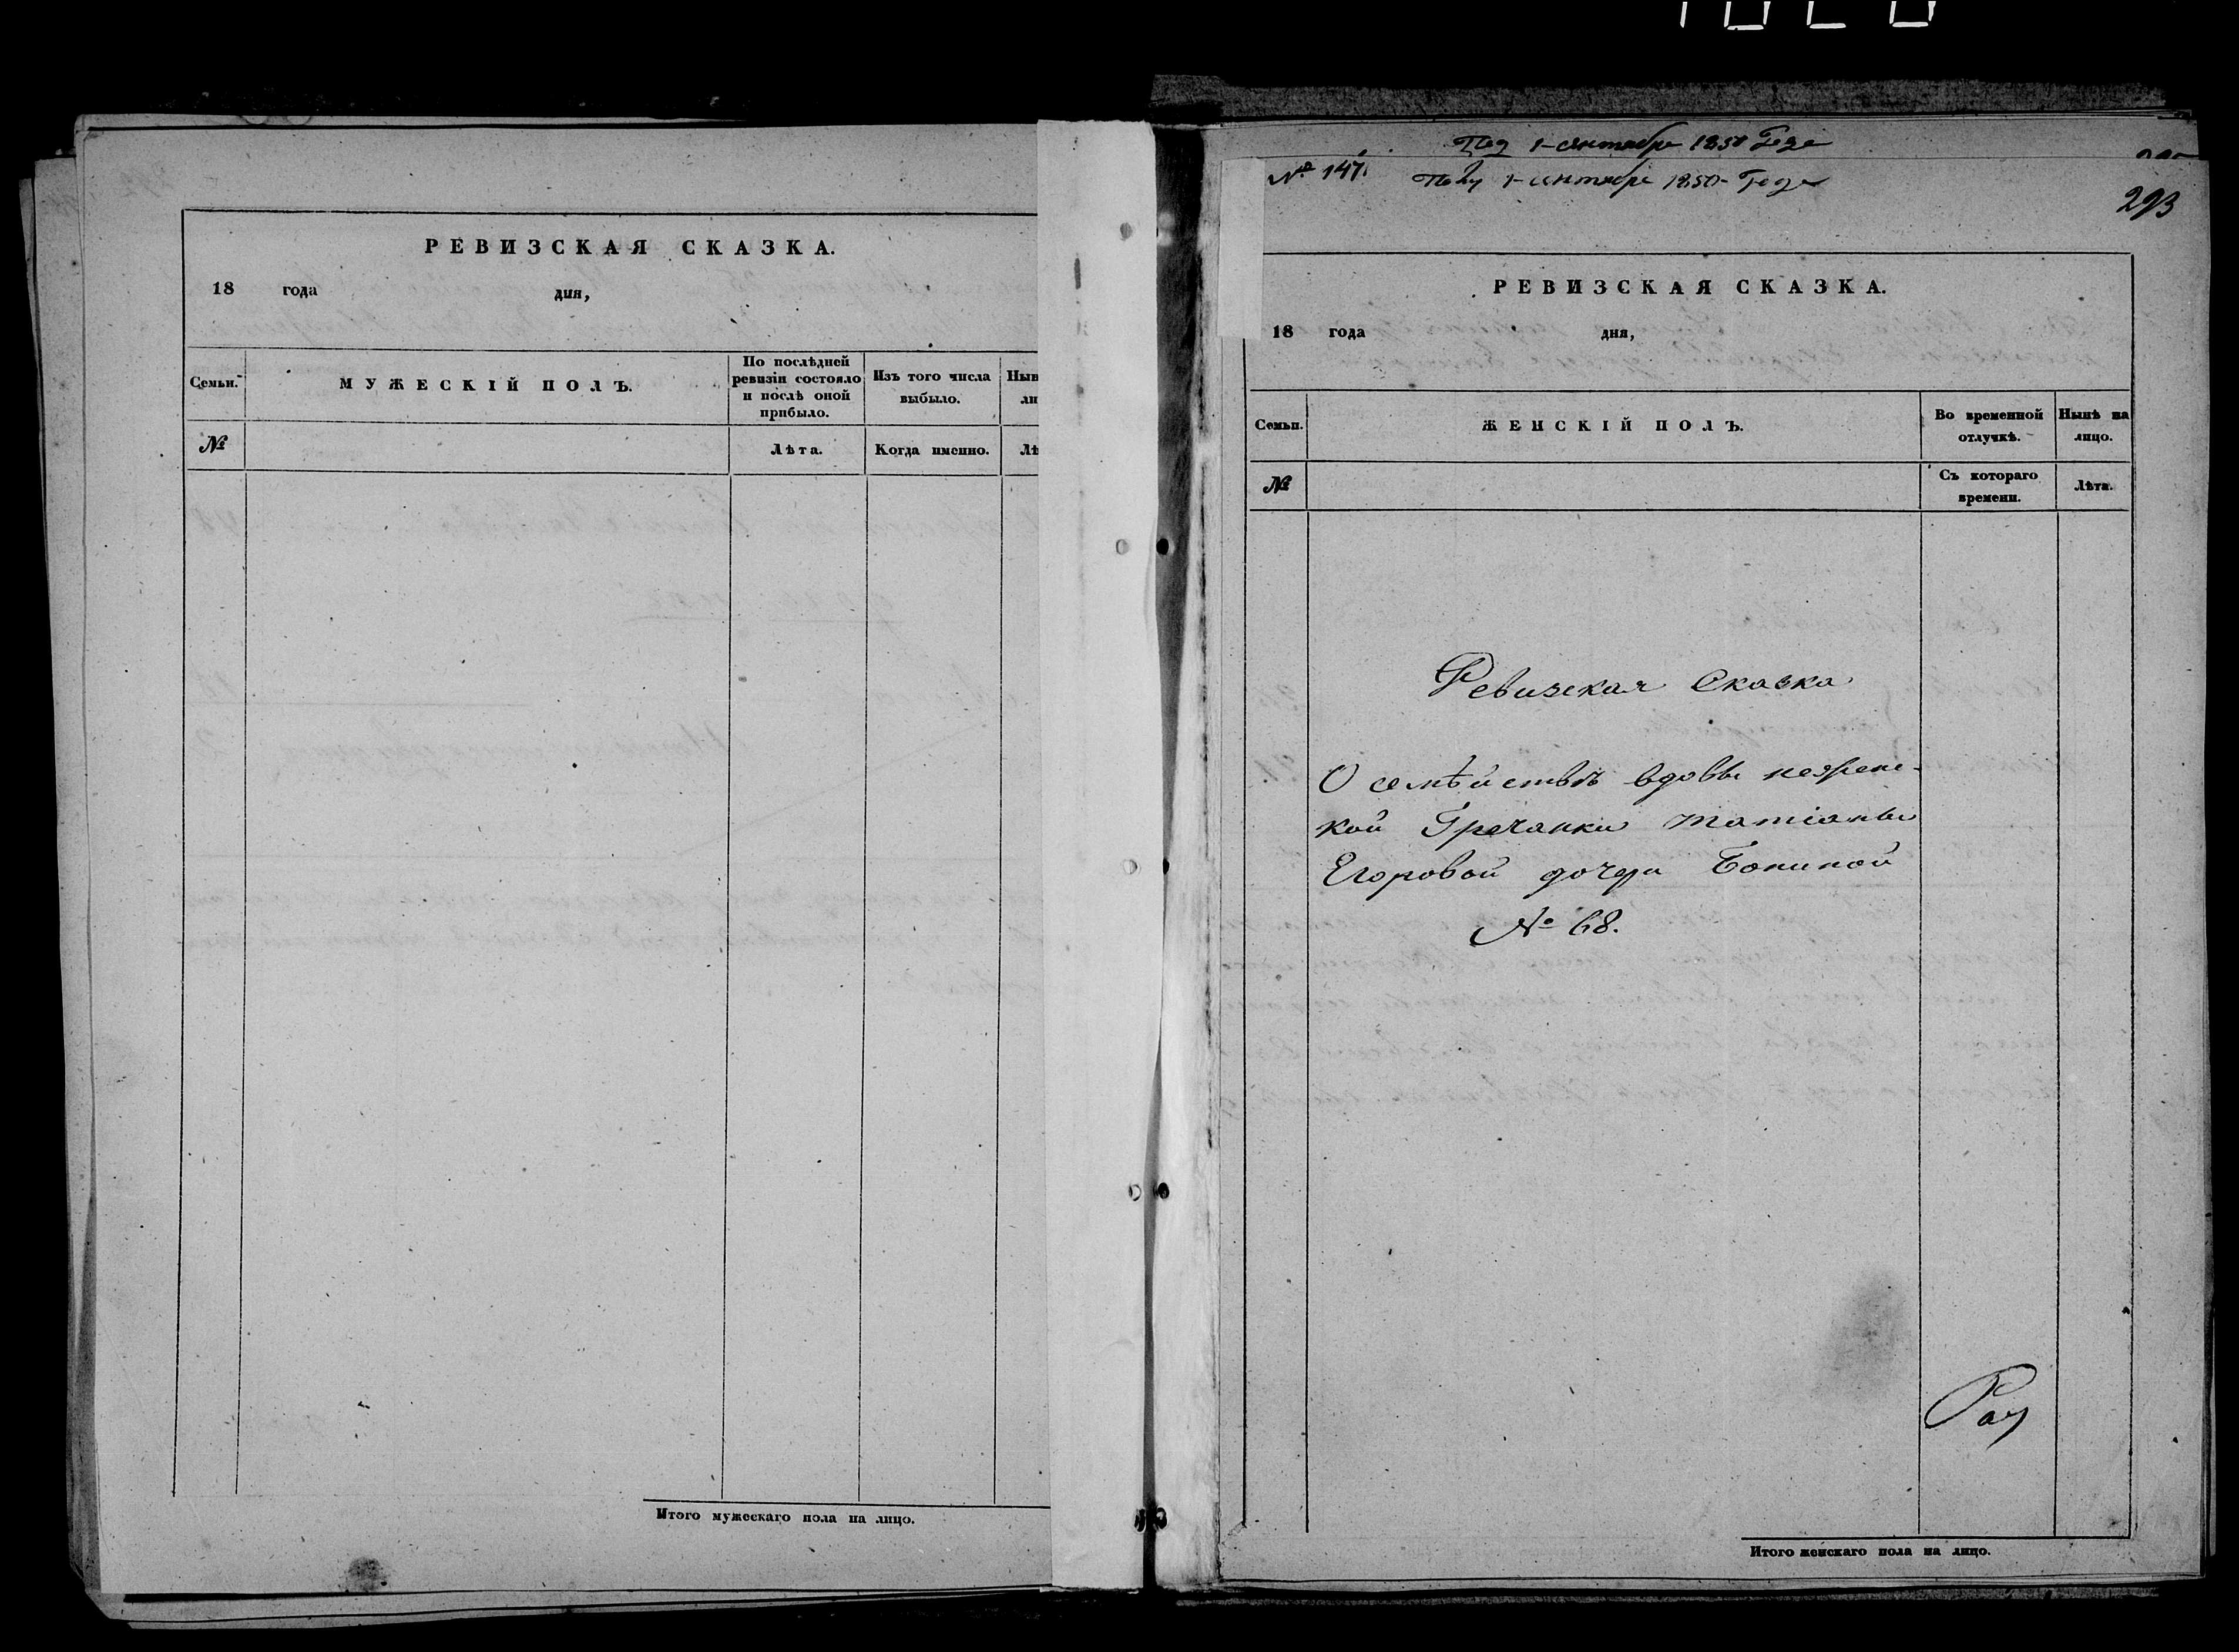 РЕВИЗСКАЯ СКАЗКА.
18 года дня,
Семьи.
МУЖЕСКІЙ ПОЛЪ.
По послѣдней ревизіи состояло и послѣ оной прибыло.
Изъ того числа выбыло.
№
Лѣта.
Когда именно.
Итого мужескаго пола на лицо.
1 сентября 1850 Года
№ 147.
1 сентября 1850 Года
293
РЕВИЗСКАЯ СКАЗКА.
18 года дня,
Семьи.
ЖЕНСКІЙ ПОЛЪ.
Во временной отлучкѣ.
Нынѣ на лицо.
№
Съ котораго времени.
Лѣта.
Ревизская Сказка
О семѣйствѣ вдовы
кой Гречанки Татіаны
Егоровой дочери
№ 68.
Итого женскаго пола на лицо.